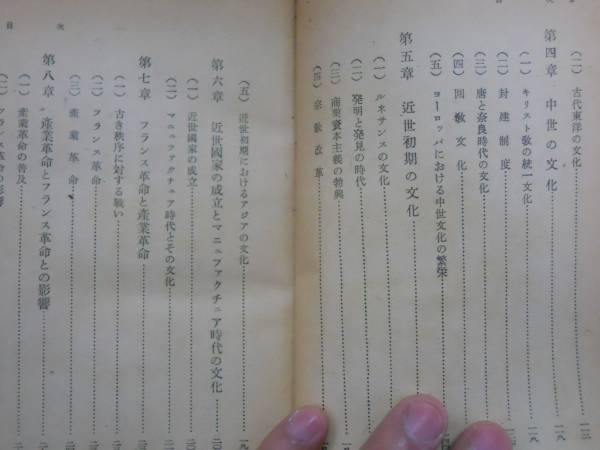 目 次
(二) 古代東洋の文化
第四章 中世の文化
(一) キリスト敎の統一文化
(二) 封建制度
(三) 唐と奈良時代の文化
(四) 回敎文化
(五) ヨーロッパにおける中世文化の繁栄
第五章 近世初期の文化
(一) ルネサンスの文化
(二) 発明と発見の時代
(三) 商業資本主義の勃興
(四) 宗敎改革
(五) 近世初期におけるアジアの文化
第六章 近世國家の成立とマニュファクチュア時代の文化
(一) 近世國家の成立
(二) マニュファクチュア時代とその文化
第七章 フランス革命と産業革命
(一) 古き秩序に対する戦い
(二) フランス革命
(三) 産業革命
第八章 産業革命とフランス革命との影響
(一) 産業革命の普及
(二) フランス革命の影響